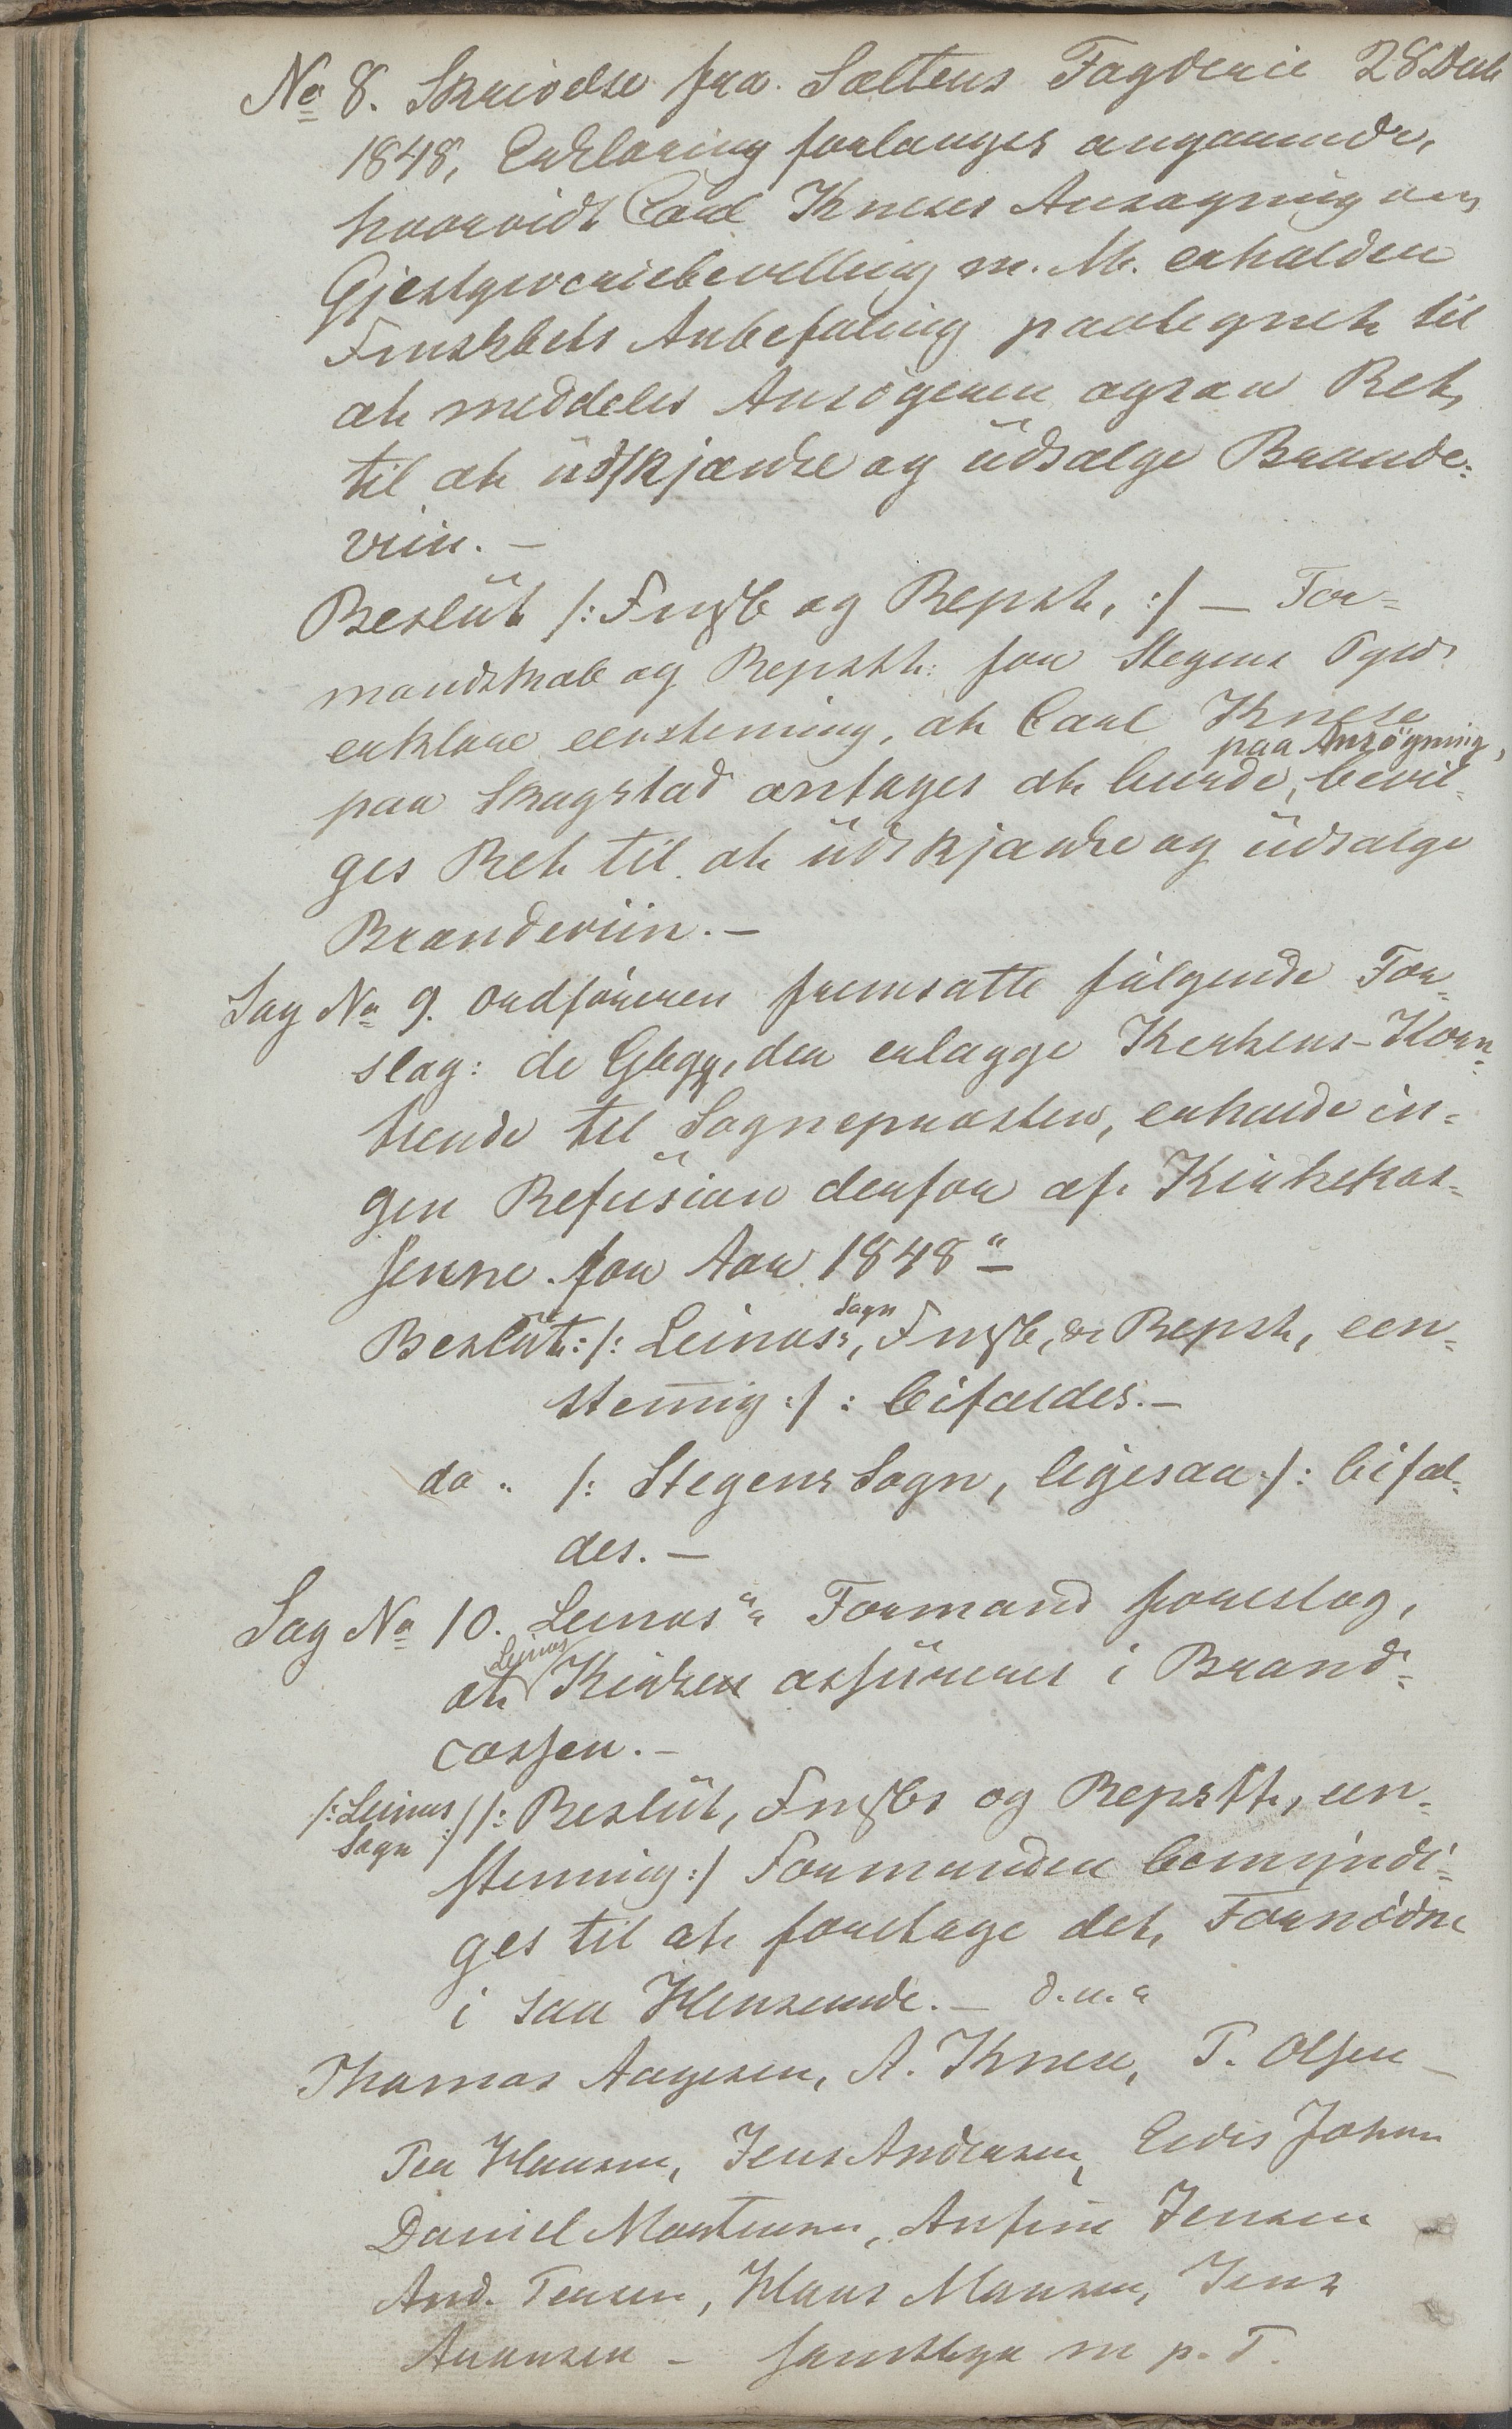 No 8. Skrivelse fra Saltens Fogderie 28 Decb
1848, Erklæring forlanges angaaende,
hvorvidt Carl Kneses Ansøgning om
Gjestgiveriebevilling m. M. erholder
Fmskbets Anbefaling paategnet til
at meddeles Ansøgeren ogsaa Ret,
til at udskjænke og udsælge Brænde-
viin. —
Beslut /: Fmskb og Repst, :/ — For-
mandskab og Repstt: for Stegens Pgld
erklære eenstemig, at Carl Knese
paa Skagstad antages at burde, paa Ansøgning, bevil-
ges Ret til at udskjænke og udsælge
Brændeviin. —
Sag No 9. Ordføreren fremsatte følgende For-
slag: de Gbrgg, der erlægge Kerkens-Korn-
tiende til Sognepræsten, erholde in-
gen Refusion derfor af Kirkekas-
serne for Aar 1848" —
Beslut: /: Leinæss Sogn, Fmskb, & Repst, een-
stemig :/ : bifaldes. —
do " /: Stegens Sogn, ligesaa :/ : bifal-
des. —
Sag No 10. Leinæs" Formand foreslog,
at Leines Kirke assureres i Brand-
cassen. —
/: Leines Sogn :/ /: Beslut, Fmskbs og Repstt, een-
stemmig :/ Formanden bemyndi-
ges til at foretage det, Fornødne
i saa Henseende. — d. u. s
Thomas Aagesen, A. Knese, P. Olsen —
Per Hansen, Jens Andersen, Edis Johns
Daniel Mortensen, Anfin Jensen
And. Jensen, Hans Monsen, Jens
Aronsen — m p. T.